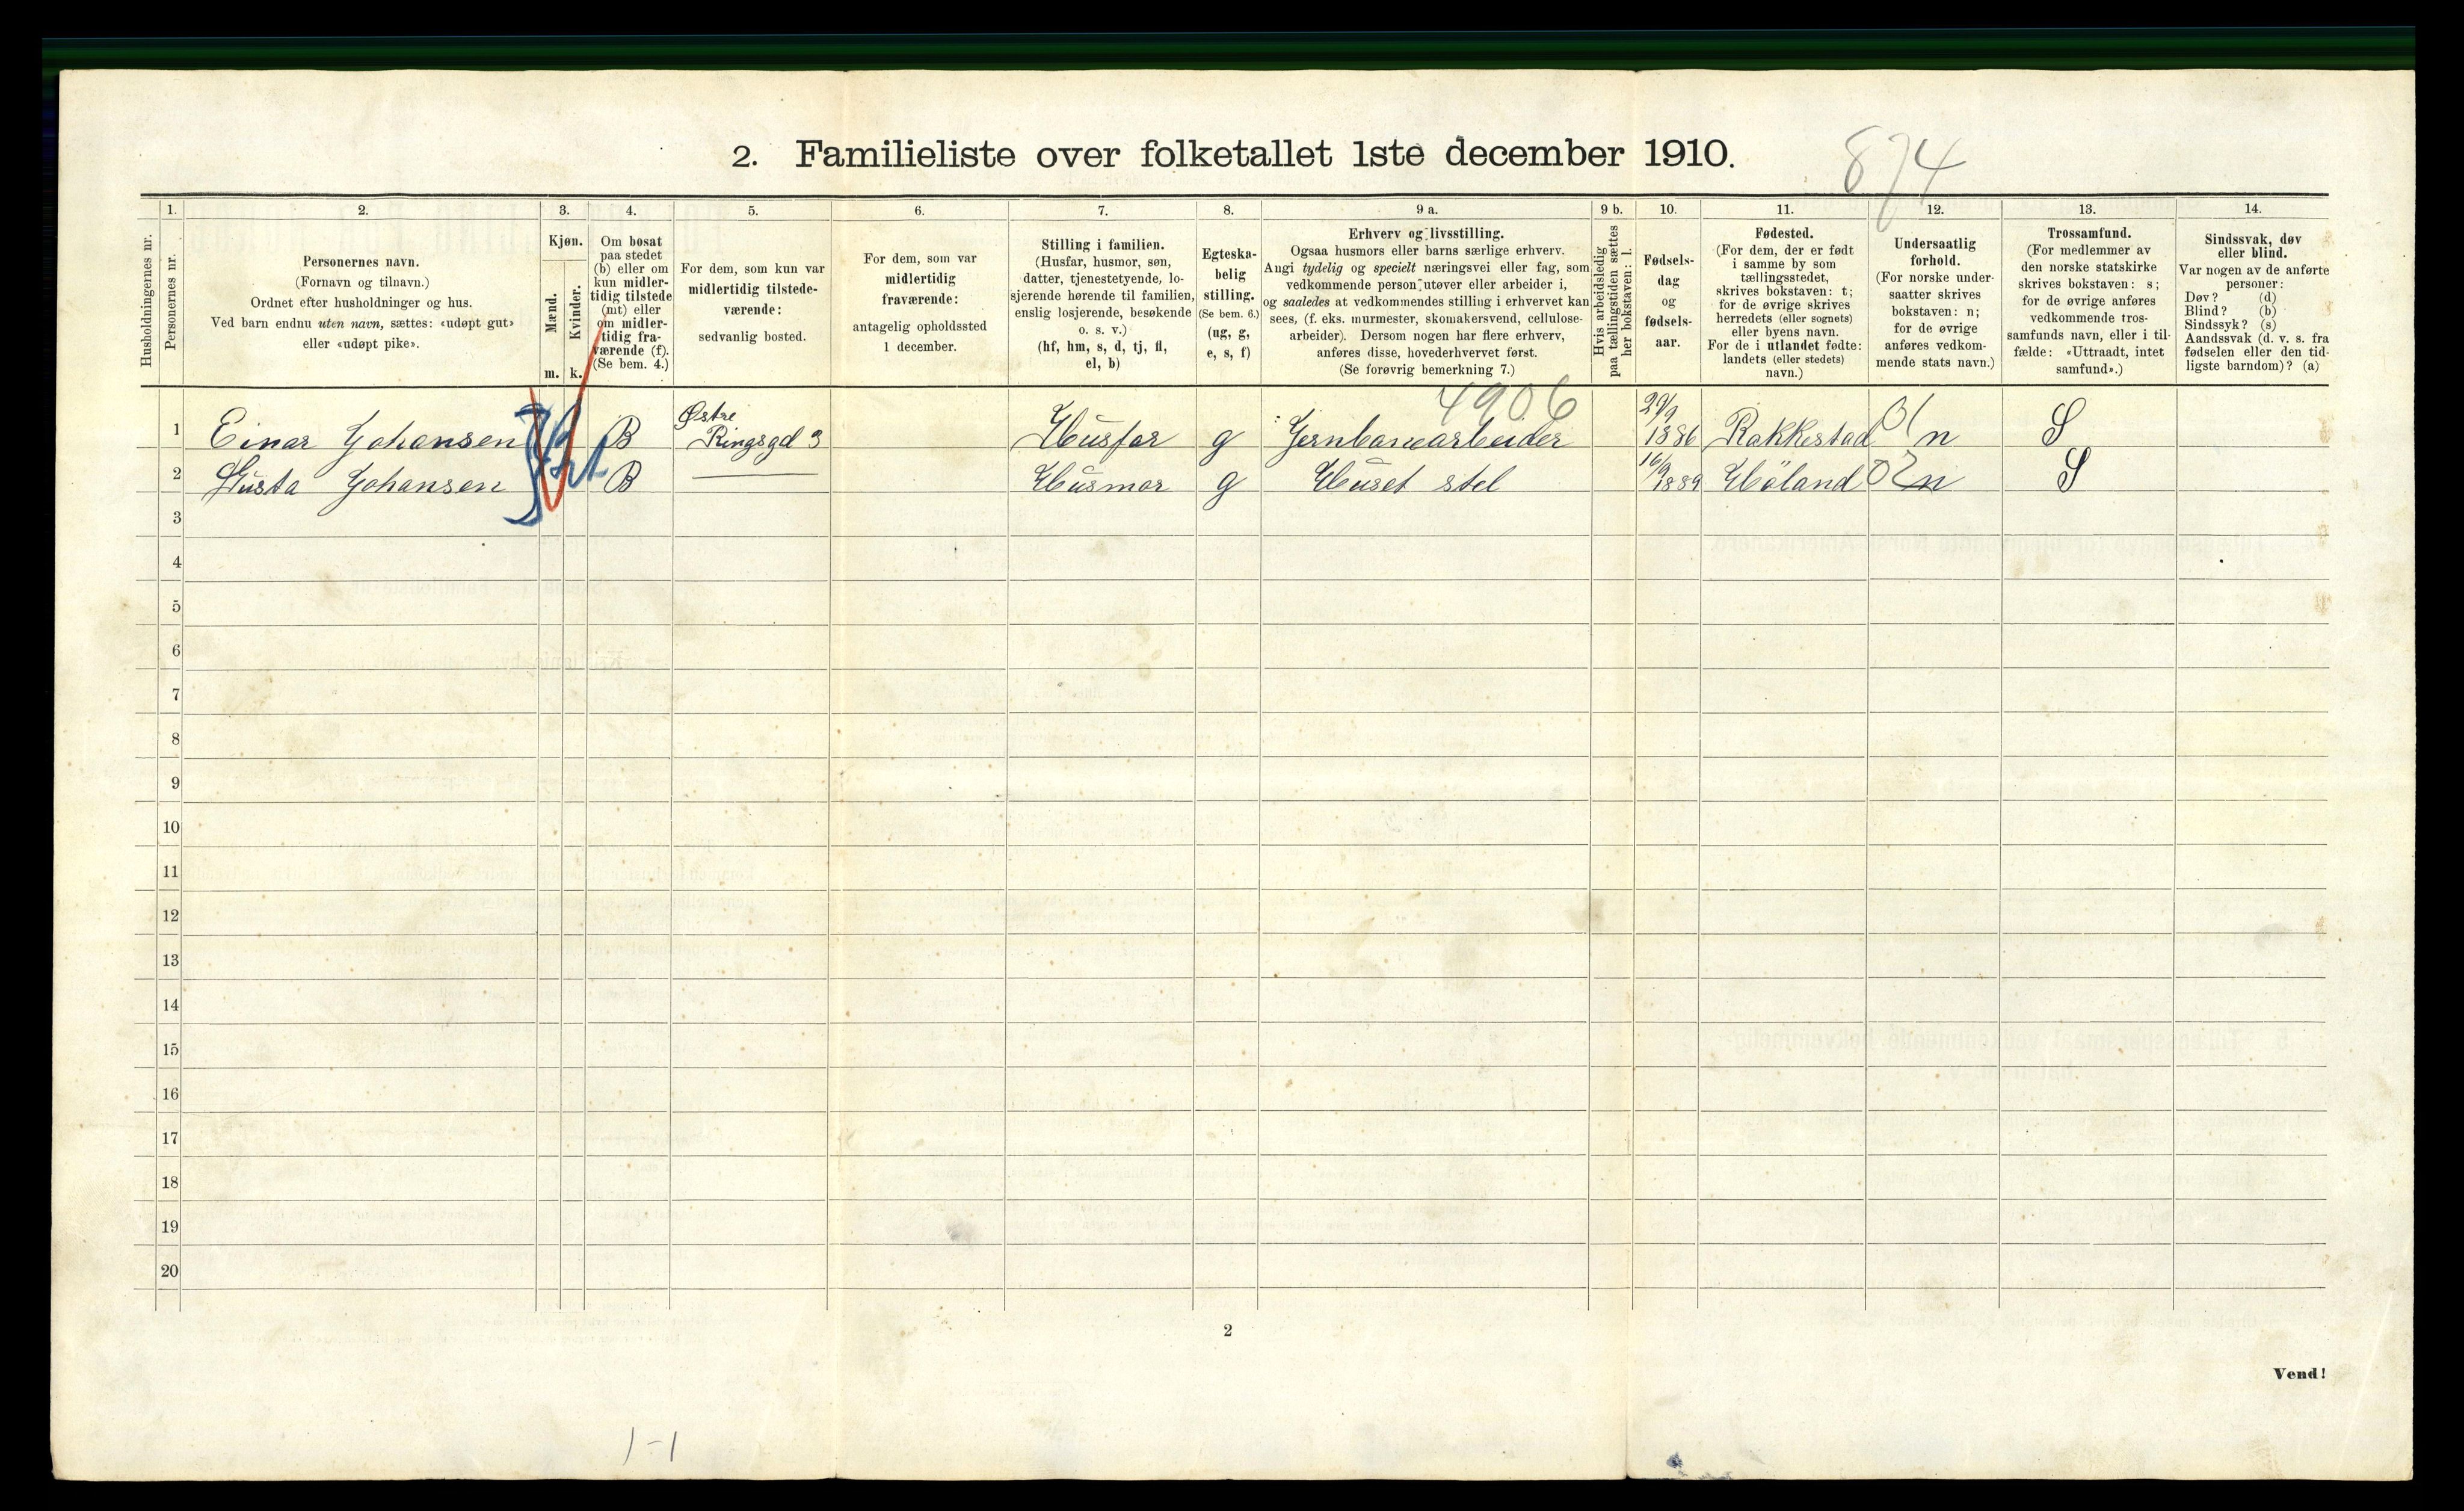 2. Familieliste over folketallet 1ste december 1910.
874
1. 2. 3. 4. 5. 6. 7. 8. 9 a. 9 b. 10. 11. 12. 13. 14.
Husholdningernes nr.
Personernes nr.
Personernes navn.
(Fornavn og tilnavn.)
Ordnet efter husholdninger og hus.
Ved barn endnu uten navn, sættes: «udøpt gut»
eller «udøpt pike».
Kjøn.
Mænd.
Kvinder.
m. k.
Om bosat
paa stedet
(b) eller om
kun midler-
tidig tilstede
(mt) eller
om midler-
tidig fra-
værende (f).
(Se bem. 4.)
For dem, som kun var
midlertidig tilstede-
værende:
sedvanlig bosted.
For dem, som var
midlertidig
fraværende:
antagelig opholdssted
1 december.
Stilling i familien.
(Husfar, husmor, søn,
datter, tjenestetyende, lo-
sjerende hørende til familien,
enslig losjerende, besøkende
o. s. v.)
(hf, hm, s, d, tj, fl,
el, b)
Egteska-
belig
stilling.
(Se bem. 6.)
(ug, g,
e, s, f)
Erhverv og livsstilling.
Ogsaa husmors eller barns særlige erhverv.
Angi tydelig og specielt næringsvei eller fag, som
vedkommende person utøver eller arbeider i,
og saaledes at vedkommendes stilling i erhvervet kan
sees, (f. eks. murmester, skomakersvend, cellulose-
arbeider). Dersom nogen har flere erhverv,
anføres disse, hovederhvervet først.
(Se forøvrig bemerkning 7.)
Hvis arbeidsledig
paa tællingstiden sættes
her bokstaven: l.
Fødsels-
dag
og
fødsels-
aar.
Fødested.
(For dem, der er født
i samme by som
tællingsstedet,
skrives bokstaven: t;
for de øvrige skrives
herredets (eller sognets)
eller byens navn.
For de i utlandet fødte:
landets (eller stedets)
navn.)
Undersaatlig
forhold.
(For norske under-
saatter skrives
bokstaven: n;
for de øvrige
anføres vedkom-
mende stats navn.)
Trossamfund.
(For medlemmer av
den norske statskirke
skrives bokstaven: s;
for de øvrige anføres
vedkommende tros-
samfunds navn, eller i til-
fælde: «Uttraadt, intet
samfund».)
Sindssvak, døv
eller blind.
Var nogen av de anførte
personer:
Døv? (d)
Blind? (b)
Sindssyk? (s)
Aandssvak (d. v. s. fra
fødselen eller den tid-
ligste barndom)? (a)
4906
1 Einar Johansen B Østre Ringsgd 3 Husfar g Jernbanearbeider 29/9 1886 Rakkestad 01 n S
2 Gusta Johansen B Husmor g Huset stel 16/9 1889 Höland 02 n S
3
4
5
6
7
8
9
10
11
12
13
14
15
16
17
18
19
20
2
Vend!
1-1